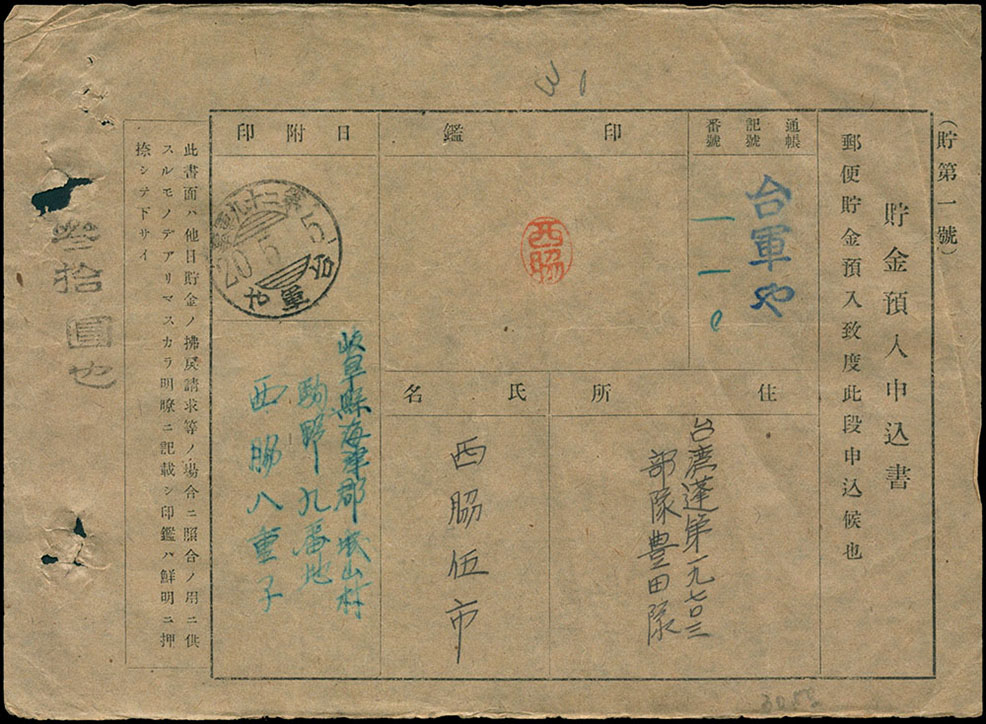 (貯第一號)
貯金預入申込書
郵便貯金預入致度此段申込候也
通帳
記號
番號
台軍や
一一〇
印鑑
西脇
住所
台湾蓬第一九七〇三
部隊豊田隊
氏名
西脇伍市
日附印
第二十九
20.5.5
台軍や
岐阜縣海津郡城山村
駒野九番地
西脇八重子
此書面ハ他日貯金ノ拂戾請求等ノ場合ニ照合ノ用ニ供
スルモノデアリマスカラ明瞭ニ記載シ印鑑ハ鮮明ニ押
捺シテ下サイ
参拾圓也